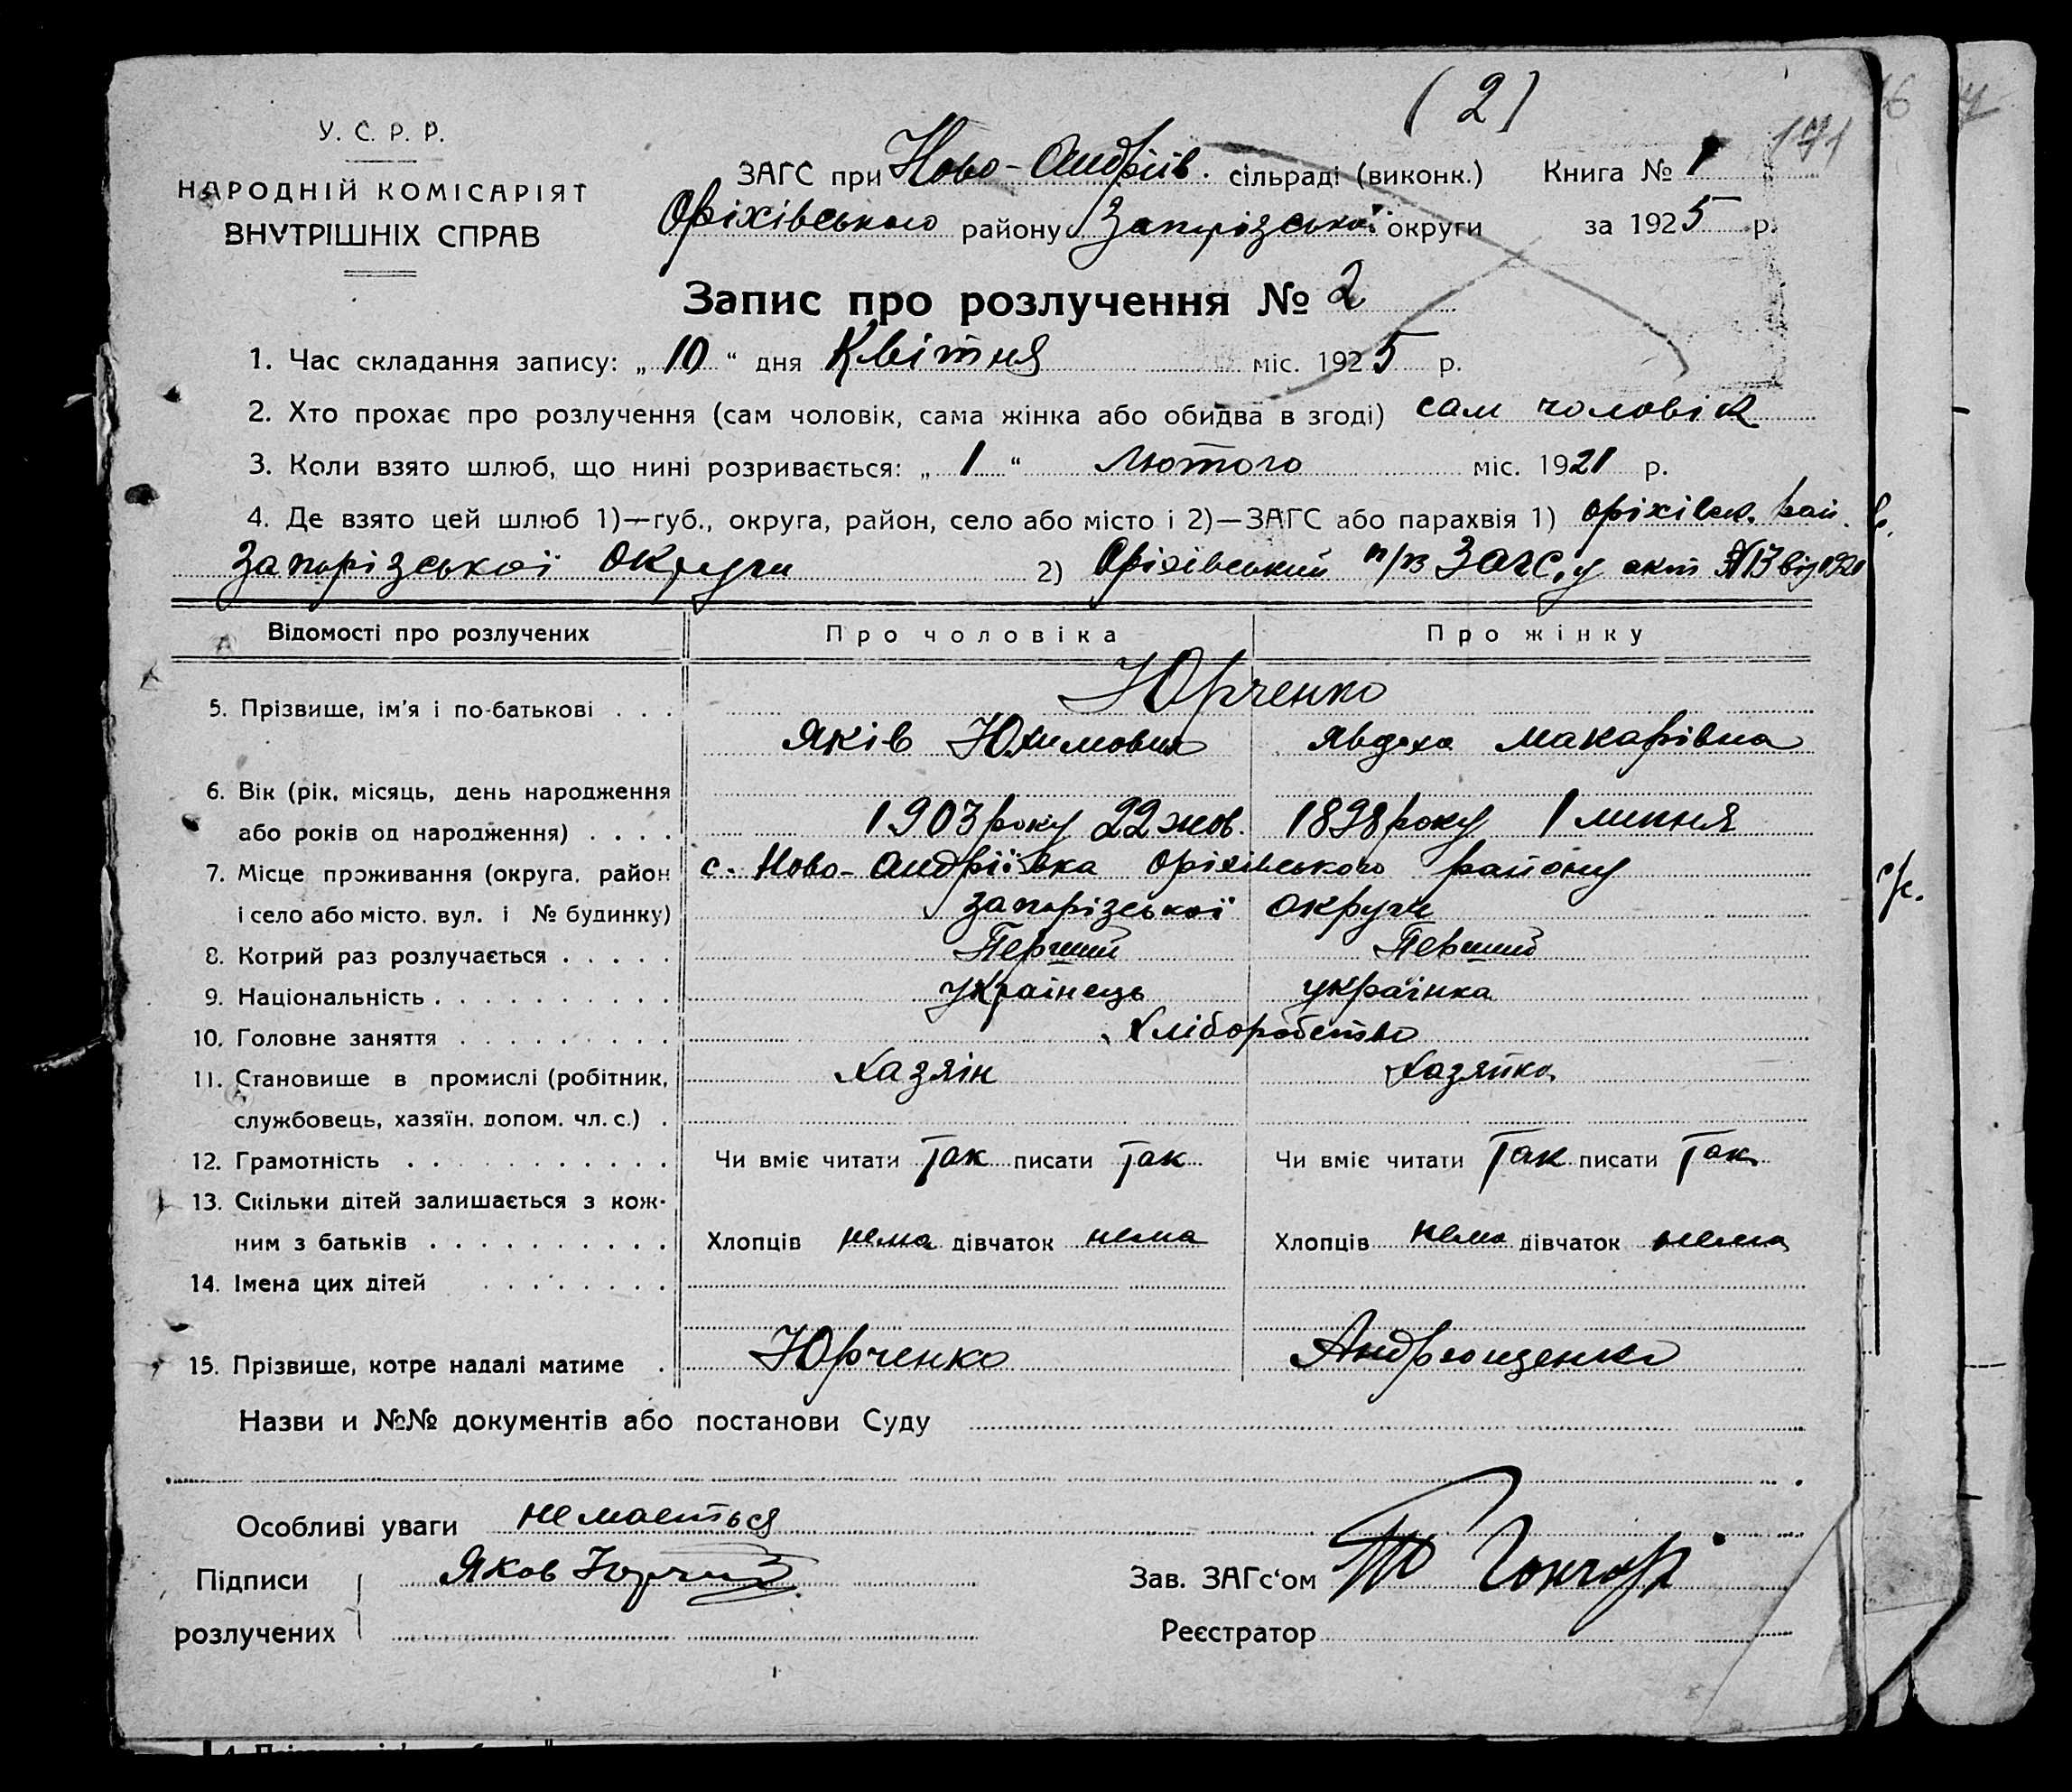 (2)
У. С. Р. Р.
НАРОДНІЙ КОМІСАРІЯТ
ВНУТРІШНІХ СПРАВ
ЗАГС при Ново-Андріїв. сільраді (виконк.) Книга № 1 171
Оріхівського району Запорізської округи за 1925 р.
Запис про розлучення № 2
1. Час складання запису: „10“ дня Квітня міс. 1925 р.
2. Хто прохає про розлучення (сам чоловік, сама жінка або обидва в згоді) сам чоловік
3. Коли взято шлюб, що нині розривається: „1“ Лютого міс. 1921 р.
4. Де взято цей шлюб 1)—губ., округа, район, село або місто і 2)—ЗАГС або парахвія 1) Оріхівськ. рай.
Запорізської Округи 2) Оріхівський п/в Загс, у акт № 13 від 1921
Відомості про розлучених Про чоловіка Про жінку
5. Прізвище, ім'я і по-батькові . . . Юрченко
Яків Юхимович Явдоха Макарівна
6. Вік (рік, місяць, день народження
або років од народження) . . . . 1903 року 22 жов. 1898 року 1 липня
7. Місце проживання (округа, район с. Ново-Андріївка Оріхівського району
і село або місто, вул. і № будинку) Запорізської округи
8. Котрий раз розлучається . . . . . Перший Перший
9. Національність . . . . . . . . . . українець українка
10. Головне заняття . . . . . . . . . Хліборобство
11. Становище в промислі (робітник, Хазяін Хазяйка
службовець, хазяїн, допом. чл. с.) .
12. Грамотність . . . . . . . . . . . Чи вміє читати Так писати Так Чи вміє читати Так писати Так
13. Скільки дітей залишається з кож-
ним з батьків . . . . . . . . . . Хлопців нема дівчаток нема Хлопців нема дівчаток нема
14. Імена цих дітей . . . . . . . .
15. Прізвище, котре надалі матиме . Юрченко Андрющенко
Назви и №№ документів або постанови Суду
Особливі уваги немається
Підписи Яков Юрчен Зав. ЗАГс'ом Гончар
розлучених Реєстратор